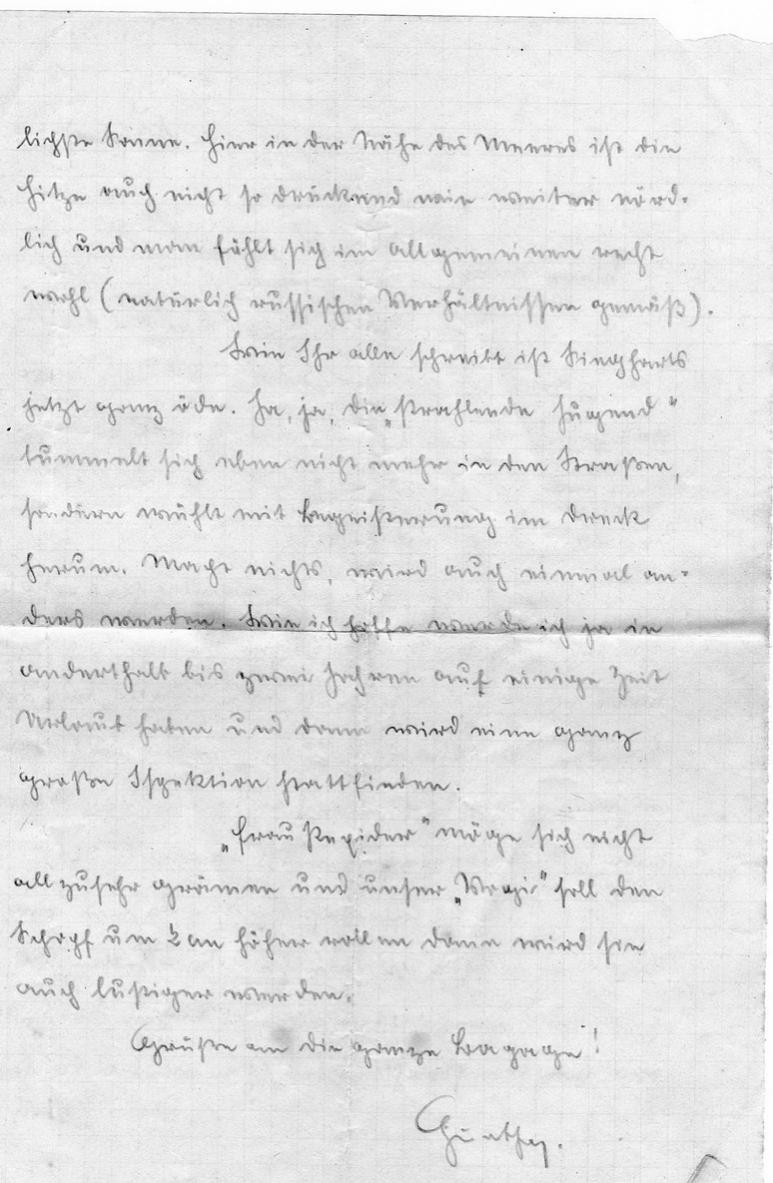 lichste Sonne. Hier in der Nähe des Meeres ist die
Hitze auch nicht so drückend wie weiter nörd-
lich und man fühlt sich im allgemeinen recht
wohl (natürlich russischen Verhältnissen gemäß).
Wie Ihr alle schreibt ist
jetzt ganz öde. Ja, ja, die „strahlende Jugend"
tummelt sich eben nicht mehr in den Straßen,
sondern wühlt mit Begeisterung im Dreck
herum. Macht nichts, wird auch einmal an-
ders werden. Wie ich hoffe werde ich ja in
anderthalb bis zwei Jahren auf einige Zeit
Urlaub haben und dann wird eine ganz
große Ispektion stattfinden.
„Frau" möge sich nicht
all zu sehr grämen und unser soll den
Schopf um 2 cm höher rollen dann wird sie
auch lustiger werden.
Grüße an die ganze Bagage!
Günther.